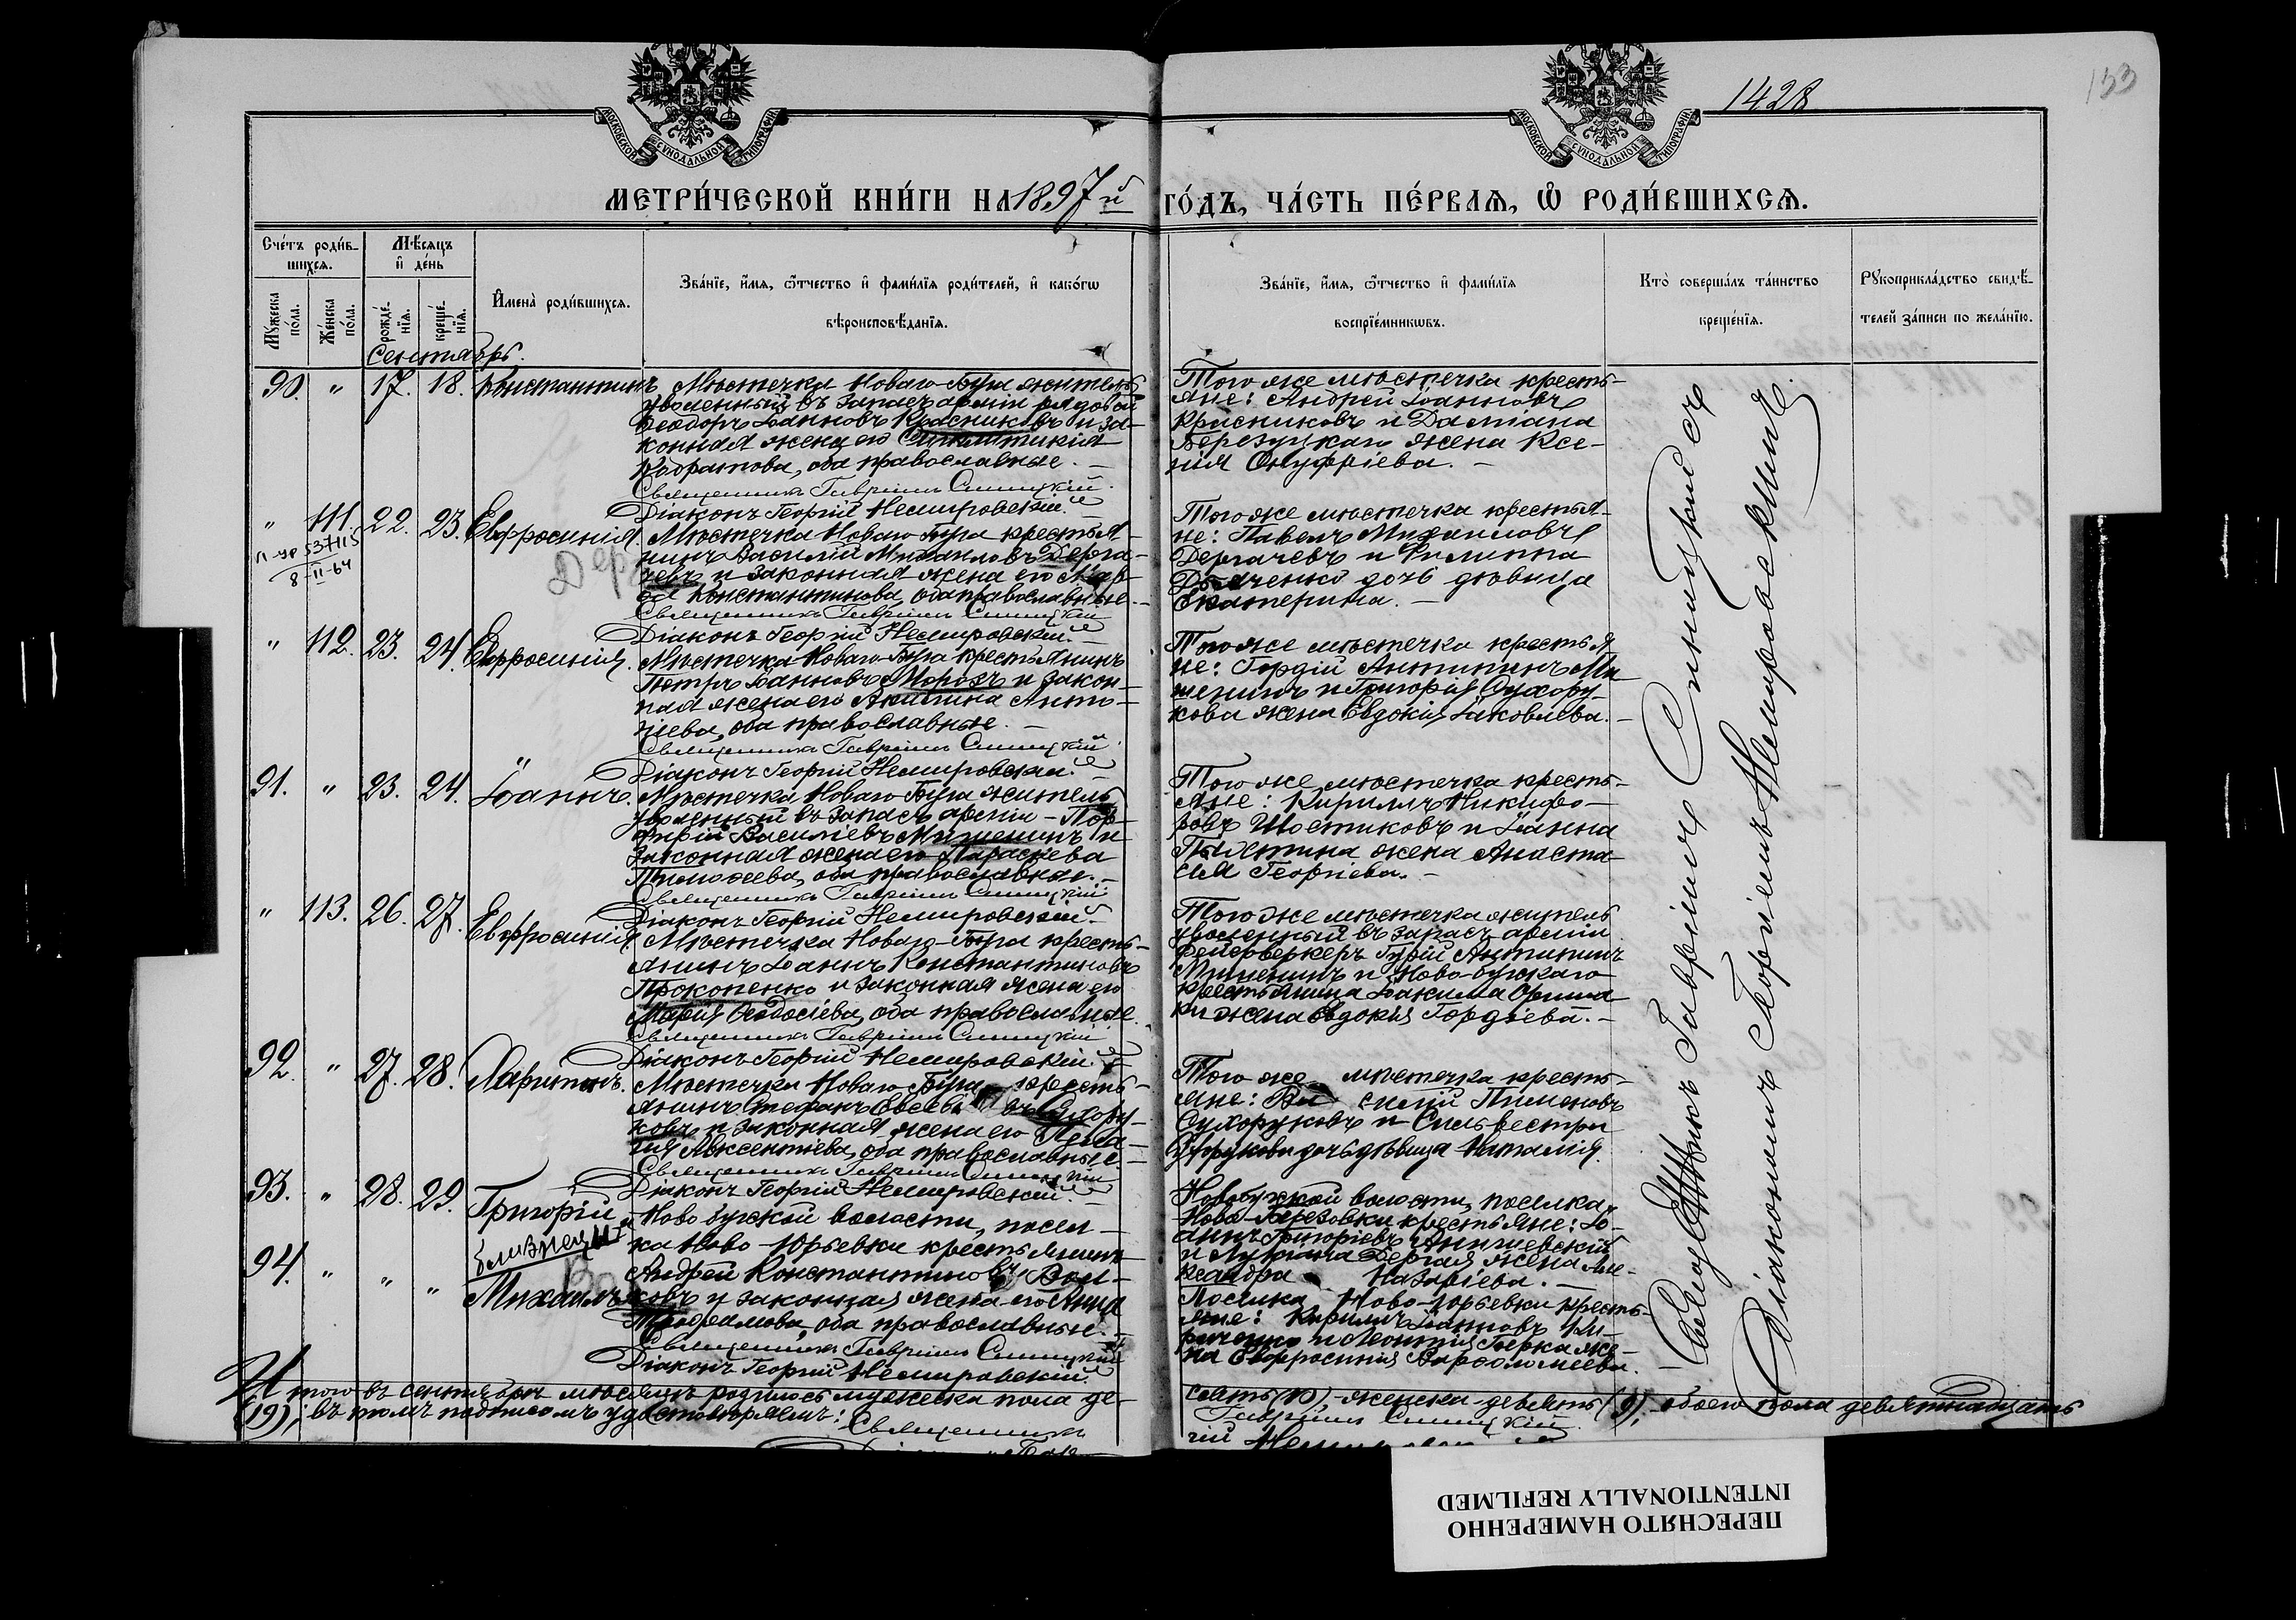 1428
133
МОСКОВСКОЙ СѴНОДАЛЬНОЙ ТИПОГРАФІИ
МОСКОВСКОЙ СѴНОДАЛЬНОЙ ТИПОГРАФІИ
МЕТРИ́ЧЕСКОЙ КНИ́ГИ НА 1897й ГО́ДЪ, ЧА́СТЬ ПЕ́РВАѦ, Ѡ РОДИ́ВШИХСѦ.
Сче́тъ роди́в-
шихсѧ.
Мꙋ́жеска по́ла.
Же́нска по́ла.
Мѣ́сѧцъ
и де́нь
рожде́-нїѧ.
креще́-нїѧ.
Имена̀ роди́вшихсѧ.
Зва́нїе, и́мѧ, ѻ́тчество и фами́лїѧ роди́телей, и како́гѡ
вѣроисповѣ́данїѧ.
Зва́нїе, и́мѧ, ѻ́тчество и фами́лїѧ
воспрїе́мникѡвъ.
Кто̀ соверша́лъ та́инство
креще́нїѧ.
Рꙋкоприкла́дство свидѣ́-
телей за́писи по жела́нїю.
Сентябрь.
90. " 17. 18. Константинъ
Мѣстечка Новаго-Буга житель
уволенный въ запасъ арміи рядовой
Ѳеодоръ Іоанновъ Красниковъ и за-
конная жена его
оба православные. —
Священникъ Гавріилъ Синицкій
Діаконъ Георгій Немировскій.
Того же мѣстечка кресть-
яне: Андрей Іоанновъ
Красниковъ и Даміана
Березуцкаго жена Ксе-
нія Онуфріева. —
" 111. 22. 23. Евфросинія
537115
8-II-64
Мѣстечка Новаго-Буга крестья-
нинъ Василій Михаиловъ Дерга-
чевъ и законная жена его Мар-
ѳа Константинова, оба православные. —
Священникъ Гавріилъ Синицкій
Діаконъ Георгій Немировскій.
Того же мѣстечка крестья-
не: Павелъ Михаиловъ
Дергачевъ и Филиппа
Дьяченко дочь дѣвица
Екатерина. —
" 112. 23. 24. Евфросинія.
Мѣстечка Новаго-Буга крестьянинъ
Петръ Іоанновъ Морозъ и закон-
ная жена его Акилина Анто-
ніева, оба православные. —
Священникъ Гавріилъ Синицкій
Діаконъ Георгій Немировскій.
Того же мѣстечка крестья-
не: Гордій Антипинъ Ми-
шенинъ и Григорія Сухору-
кова жена Евдокія Іаковлева. —
91. " 23. 24. Іоаннъ.
Мѣстечка Новаго-Буга житель
уволенный въ запасъ арміи - Пор-
фирій Василіевъ Мишенинъ и
законная жена его Параскева
Тимоѳеева, оба православные. —
Священникъ Гавріилъ Синицкій
Діаконъ Георгій Немировскій.
Того же мѣстечка кресть-
яне: Кириллъ Никифо-
ровъ Шостиковъ и Іоанна
жена Анаста-
сія Георгіева. —
" 113. 26. 27. Евфросинія.
Мѣстечка Новаго-Буга кресть-
янинъ Іоаннъ Константиновъ
Прокопенко и законная жена его
Марія Ѳеодосіева, оба православные.
Священникъ Гавріилъ Синицкій
Діаконъ Георгій Немировскій.
Того же мѣстечка житель
уволенный въ запасъ арміи
фейерверкеръ Гурій Антипинъ
Мишенинъ и Ново-бужскаго
крестьянина Іоакима
жена Евдокія Гордіева. —
92. " 27. 28. Харитонъ.
Мѣстечка Новаго-Буга кресть-
янинъ Стефанъ Сухору-
ковъ и законная жена его
Авксентіева, оба православные —
Священникъ Гавріилъ Синицкій
Діаконъ Георгій Немировскій.
Того же мѣстечка кресть-
яне: Василій Пименовъ
Сухоруковъ и Сильвестра
дочь дѣвица Наталія.
93. " 28. 29. Григорій
близнецы
94. " " " Михаилъ
Ново-бужской волости, посел-
ка Ново-Юрьевки крестьянинъ
Андрей Константиновъ Вол-
ковъ и законная жена его Анна
оба православные. —
Священникъ Гавріилъ Синицкій
Діаконъ Георгій Немировскій.
Новобужской волости, поселка
крестьяне: Іо-
аннъ Григоріевъ
и жена Але-
ксандра Назаріева. —
Поселка Ново-Юрьевки кресть-
яне: Кириллъ Іоанновъ
и Леонтія же-
на Евфросинія Варѳоломеева.
Священникъ Гавріилъ Синицкій съ
Діакономъ Георгіемъ Немировскимъ.
Итого въ сентябрѣ мѣсяцѣ родилось мужеска пола де-
сять (10), женска девять (9), обоего пола девятнадцать
(19); въ томъ подписомъ удостовѣряемъ: Священникъ
Гавріилъ Синицкій
ПЕРЕСНЯТО НАМЕРЕННО
INTENTIONALLY REFILMED